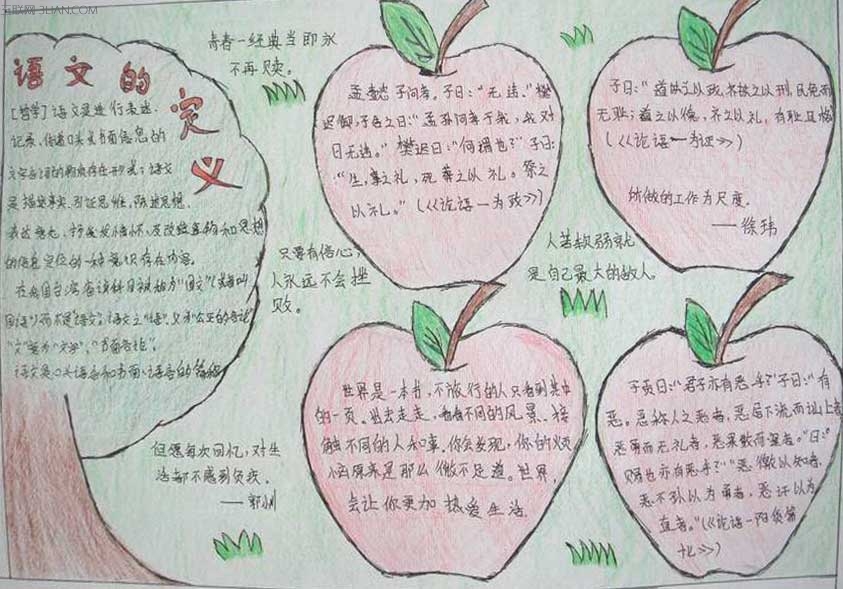 语文的定义
[哲学]语文是进行表述、
记录、传递口头或书面信息的
文字言词的物质存在形式；语文
是描案事实、引证思维、陈述思想、
表达意志、抒发情怀、及改造事物和思想
的信息定位的一种意识存在内容。
在我国台湾省该科目被称为“国文”（或者叫
国语）而不是“语文”。语文之“语”，义
“文”是为“文学”、“书面
语文是口头语言和书面语言的简称
青春一经典当即永
不再赎。
孟懿子问孝。子曰：“无违。”樊
迟御，子告之曰：“孟孙问孝于我，我对
曰无违。”樊迟曰：“何谓也？”子曰：
“生，事之礼，死葬之以礼。祭之
以礼。”（《论语—为政》）
子曰：“道之以政，齐之以刑，民免而
无耻；道之以德，齐之以礼，有耻且格
（《论语— 》）
所做的工作为尺度。
——徐玮
只要有信心，
人永远不会挫
败。
人若软弱就
是自己最大的敌人。
世界是一本书，不旅行的人只看到其中
的一页。出去走走，看看不同的风景、接
触不同的人和事。你会发现，你的烦
恼原来是那么微不足道。世界，
会让你更加热爱生活。
子贡曰：“君子亦有恶乎？”子曰：“有
恶。恶称人之恶者，恶居下流而讪上者
恶勇而无礼者，恶果敢而窒者。”曰：“
赐也亦有恶乎？”“恶徼以知者，
恶不孙以为勇者，恶讦以为
直者。”（《论语—阳货第
十七》）
但愿每次回忆，对生
活都不感到负疚。
——郭小川